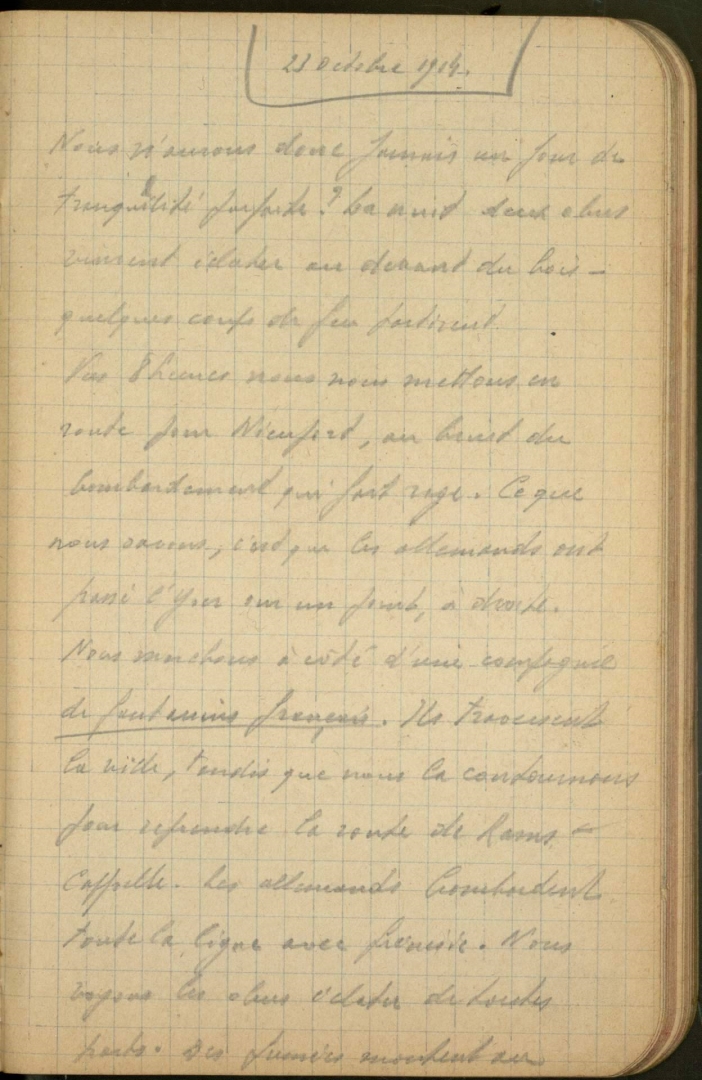 23 octobre 1914.
Nous n'aurons donc jamais un jour de
tranquillité parfaite ? La nuit deux obus
vinrent éclater au devant du bois -
quelques coups de feu partirent
Vers 8 heures nous nous mettons en
route pour Nieuport, au bruit du
bombardement qui fait rage. Ce que
nous savons, c'est que les allemands ont
passé l'Yser sur un point, à droite.
Nous marchons à côté d'une compagnie
de fantassins français. Ils traversent
la ville, tandis que nous la contournons
pour reprendre la route de Rams -
Cappelle. Les allemands bombardent
toute la ligne avec frénésie. Nous
voyons les obus éclater de toutes
parts. Des fumées montent au